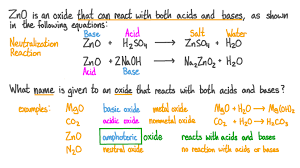 ZnO is an oxide that can react with both acids and bases, as shown
in the following equations:
Base Acid Salt Water
Neutralization Reaction ZnO + H₂SO₄ → ZnSO₄ + H₂O
ZnO + 2NaOH → Na₂ZnO₂ + H₂O
Acid Base
What name is given to an oxide that reacts with both acids and bases?
examples: MgO basic oxide metal oxide MgO + H₂O → Mg(OH)₂
CO₂ acidic oxide nonmetal oxide CO₂ + H₂O → H₂CO₃
ZnO amphoteric oxide reacts with acids and bases
N₂O neutral oxide no reaction with acids or bases